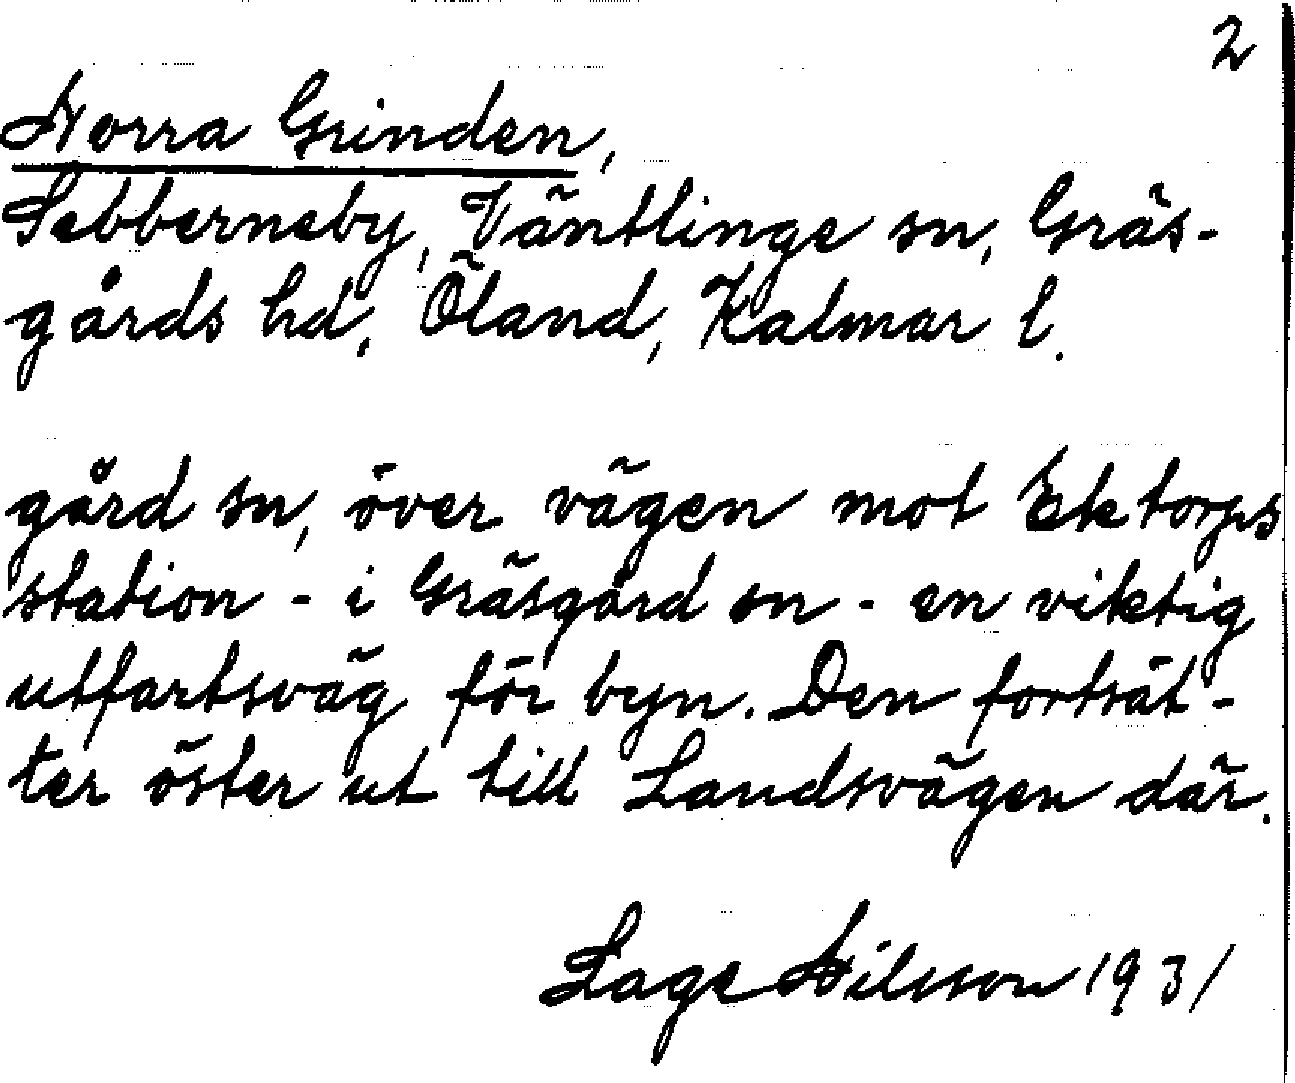 2
Norra Grinden,
Sebberneby, Ventlinge sn, Gräs-
gårds hd, Öland, Kalmar l.
gård sn, över vägen mot Ektorps
station - i Gräsgård sn - en viktig
utfartsväg för byn. Den fortsät-
ter öster ut till Landsvägen där.
Lage Nilsson 1931